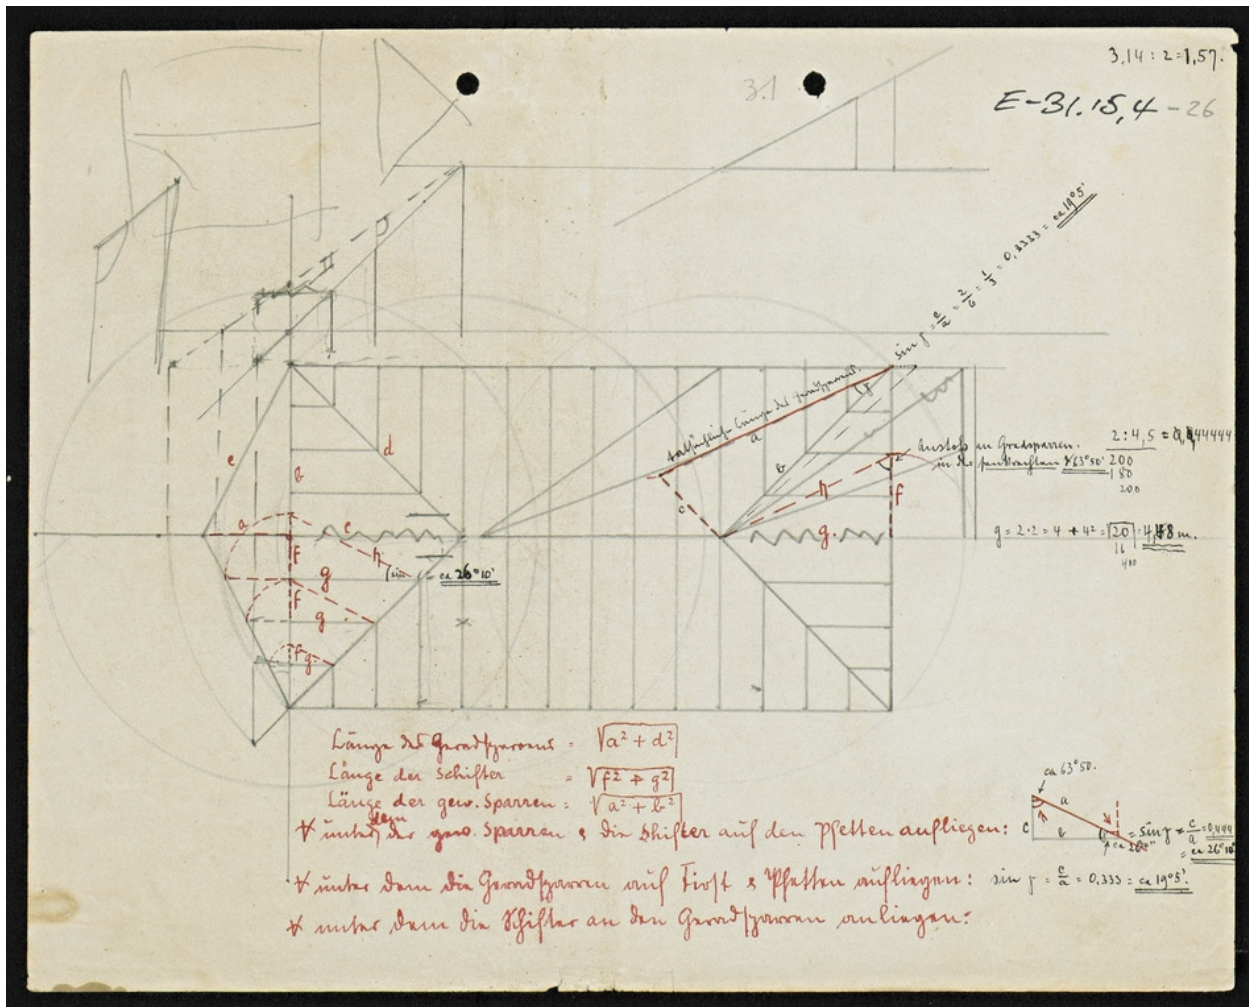 3,14 : 2 = 1,57.
3.1
E-31.15,4 - 26
sin γ = c/a = 2/6 = 1/3 = 0,3333 = ca 19°5'
tatsächliche Länge des Gradsparrens.
a
b
c
Anstoß an Gradsparren.
in der Senkrechten ∢ 63°50'
2 : 4,5 =
200
180
200
h
f
g.
g = 2·2 = 4 + 4² = √20 =
16
400
e
d
b
a
c
f
h
g
f
g
f
g.
ca 26°10'
Länge des Gradsparrens = √a² + d²
Länge der Schifter = √f² + g²
Länge der gew. Sparren = √a² + b²
∢ unter dem der gew. Sparren & die Schifter auf den Pfetten aufliegen:
ca 63°50.
a
c
b
= sin γ = c/a = 0,444
= ca 26°10'
∢ unter dem die Gradsparren auf First & Pfetten aufliegen: sin γ = c/a = 0,333 = ca 19°5'.
∢ unter dem die Schifter an den Gradsparren anliegen: